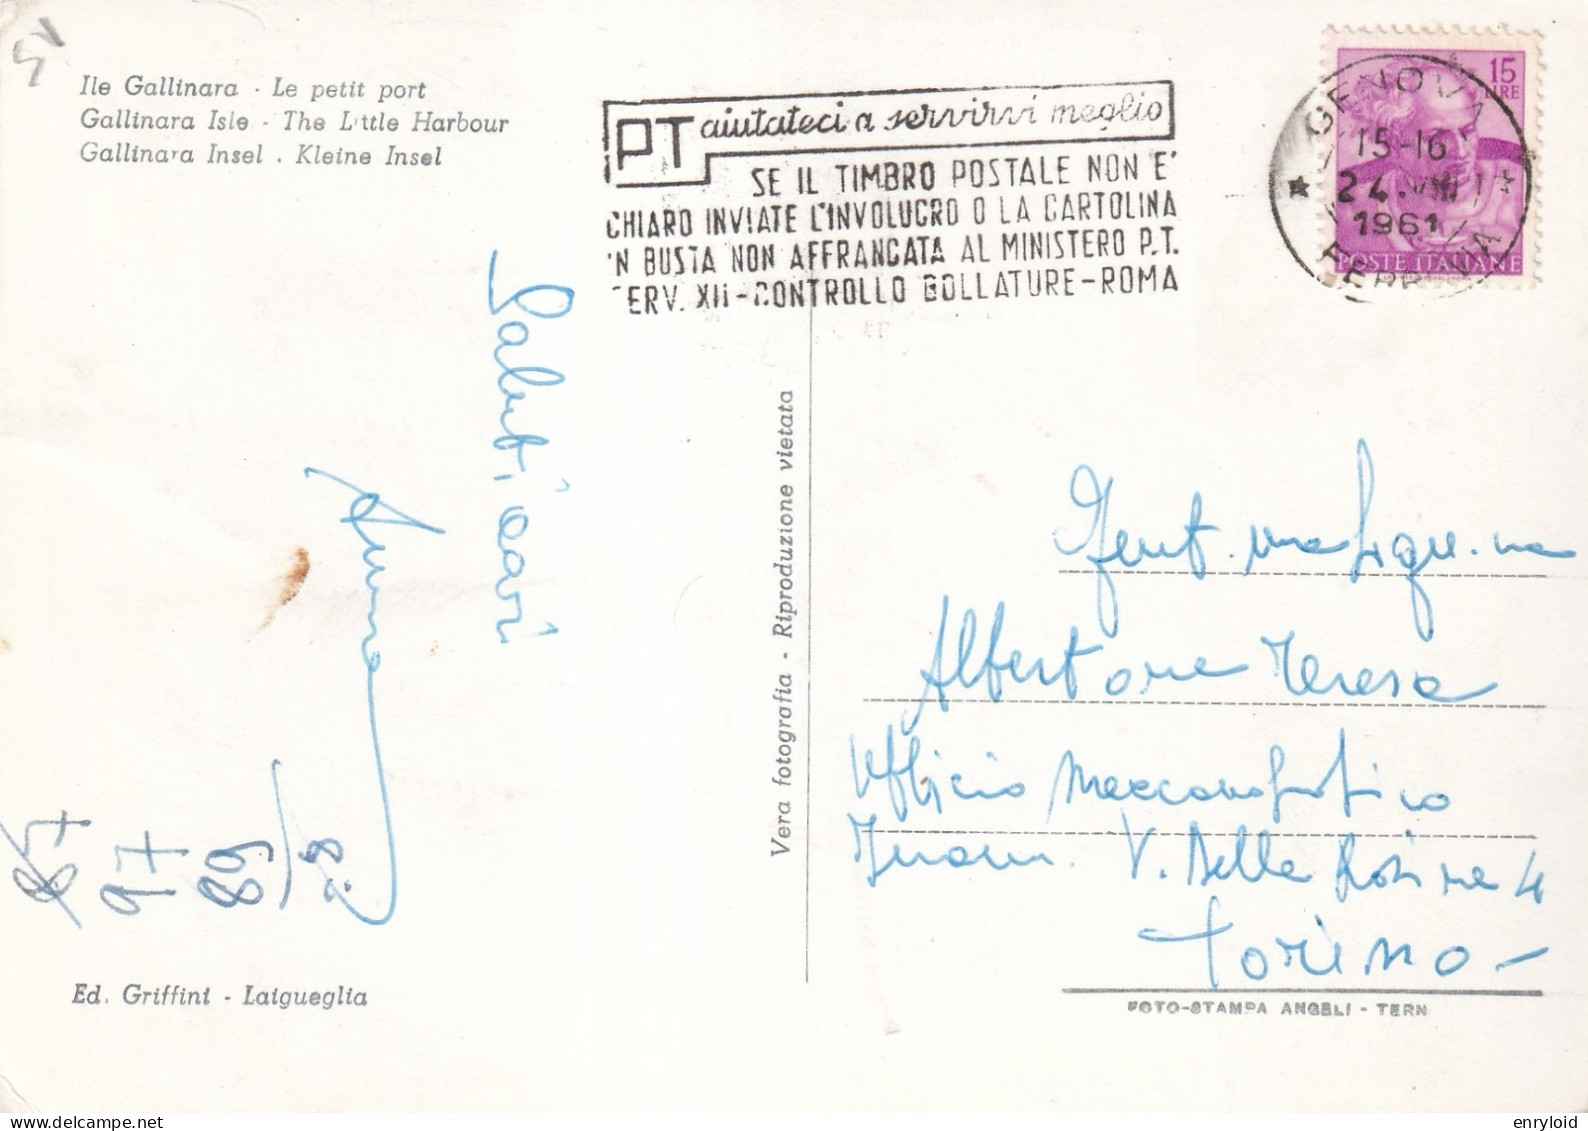 SV
Ile Gallinara - Le petit port
Gallinara Isle - The Little Harbour
Gallinara Insel . Kleine Insel
PT aiutateci a servirvi meglio
SE IL TIMBRO POSTALE NON E'
CHIARO INVIATE L'INVOLUCRO O LA CARTOLINA
'N BUSTA NON AFFRANCATA AL MINISTERO P.T.
SERV. XII - CONTROLLO BOLLATURE - ROMA
15 LIRE
POSTE ITALIANE
GENOVA
15-16
24.VIII
1961
FERROVIA
Saluti cari
Anna
Vera fotografia - Riproduzione vietata
Gent.ma Sig.na
Albertone Teresa
Ufficio Meccanografico
V. Delle Rosine 4
Torino
87+
97+
89
Ed. Griffini - Laigueglia
FOTO-STAMPA ANGELI - TERN
enryloid